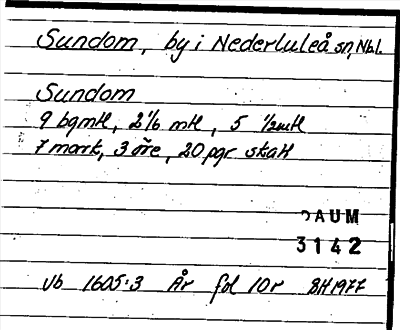 Sundom, by i Nederluleå sn, Nbl.
Sundom
9 bgmtl, 2 1/6 mtl, 5 1/2mtl
7 mark, 3 öre, 20 pgr skatt
DAUM
3142
Vb 1605:3 År fol 10r BH 1977